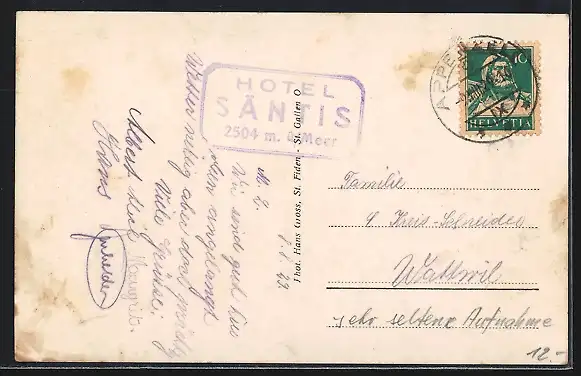 HOTEL
SÄNTIS
2504 m. ü. Meer
M. L.
Wir sind gut hier
oben angelangt
Wetter neblig aber doch prächtig
Viele Grüsse.
Albert Lieb
Hans
Phot. Hans Gross, St. Fiden - St. Gallen O
APPENZELL
10
HELVETIA
Familie
Kreis-Schneider
Wattwil
sehr seltene Aufnahme
12.-